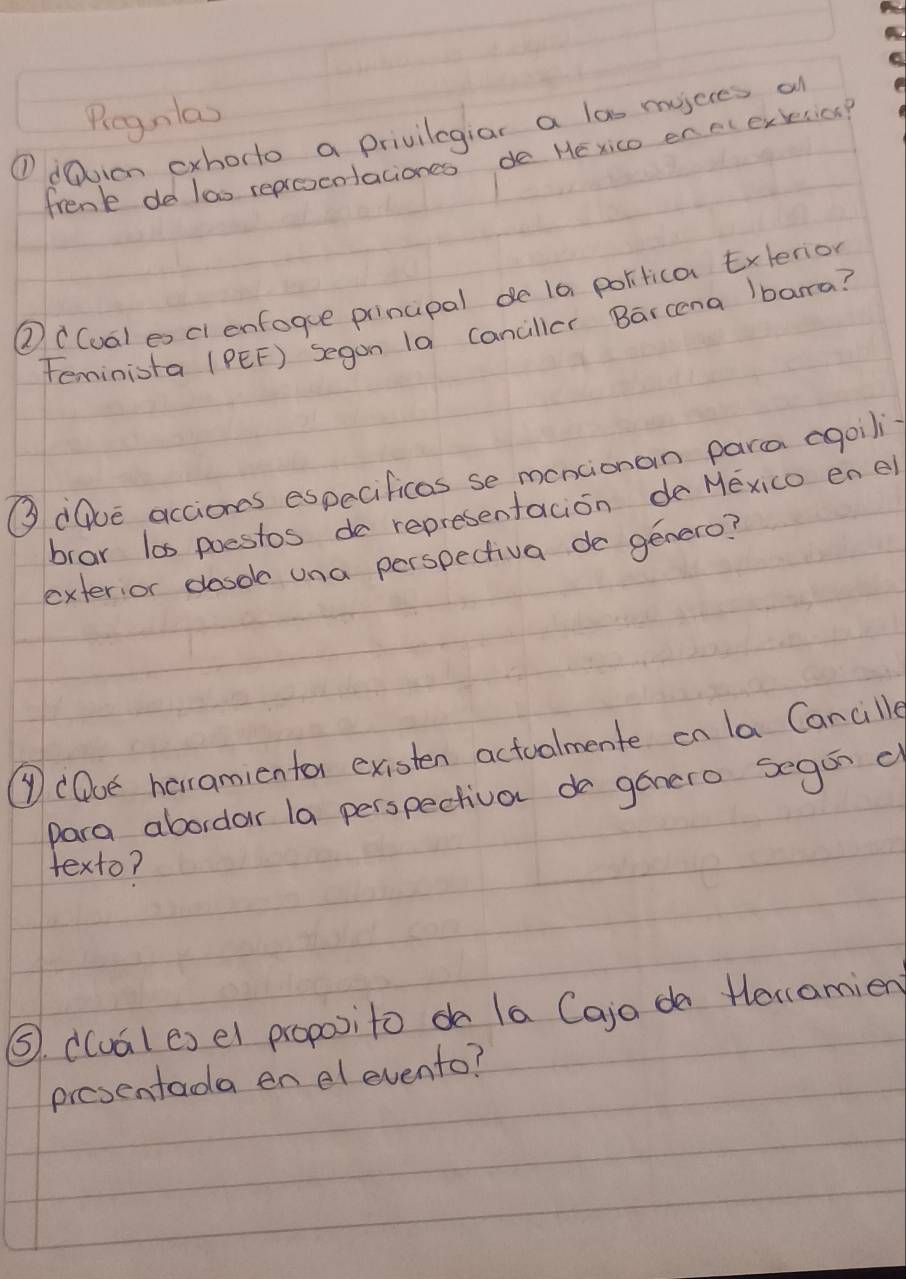 Preguntas
① ¿Quien exhorto a privilegiar a las mujeres al
frente de las representaciones de México en el exterior?
② ¿Cuál es el enfoque principal de la política Exterior
Feminista (PEF) segun la canciller Bárcena Ibarra?
③ ¿Qué acciones especificas se mencionan para equili-
brar los puestos de representación de México en el
exterior desde una perspectiva de género?
④ ¿Qué herramienta existen actualmente en la Cancille
para abordar la perspectiva de género según el
texto?
⑤. ¿Cuál es el proposito de la Caja de Herramient
presentada en el evento?